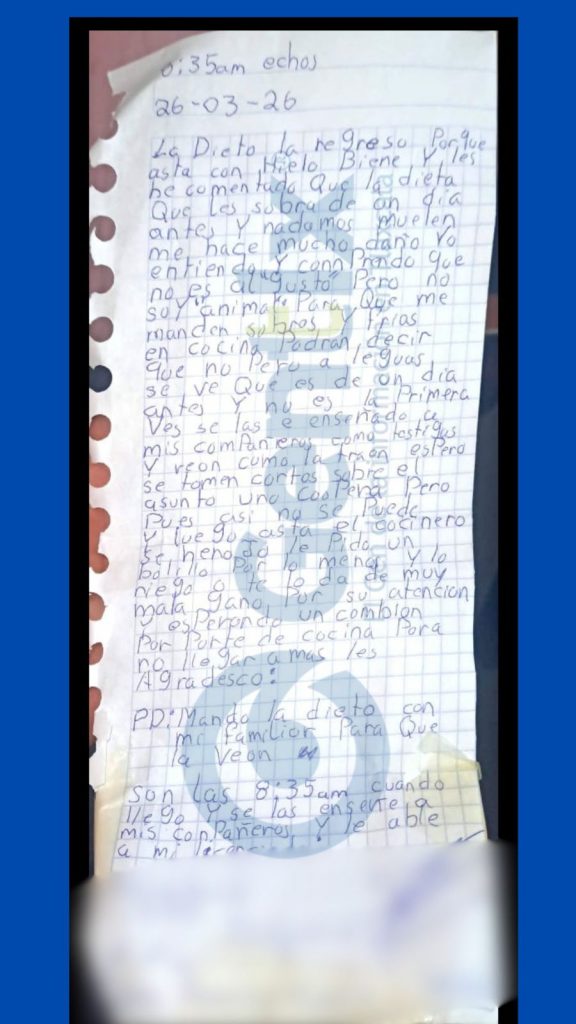 0:35am echos
26-03-26
La Dieto la regreso Porque
asta con Hielo Biene Y les
he comentado Que la dieta
Que les sobra de un dia
antes Y nadamos muelen
me hace mucho daño Yo
entiendo Y conn Prendo que
no es al gusto Pero no
soY "animal" Para Que me
manden sobros Y frias
en cocina Podran decir
que no Pero a leguas
se ve Que es de un dia
antes Y no es la Primera
Ves se las e enseñado a
mis compañeros como testigos
Y veon como la traen espero
se tomen cartas sobre el
asunto uno coopera Pero
Pues asi no se Puede
Y luego asta el cocinero
se henojo le Pido un
bolillo Por lo menos Y lo
niego o te lo da de muy
mala gano Por su atencion
y esperondo un combion
Por Porte de cocina Para
no llegar a mas les
Agradesco:
PD: Mando la dieto con
mi familior Para Que
la Veon
son las 8:35am cuando
llego Y se las enseñe a
mis conPañeros Y le able
a mi
GentIx